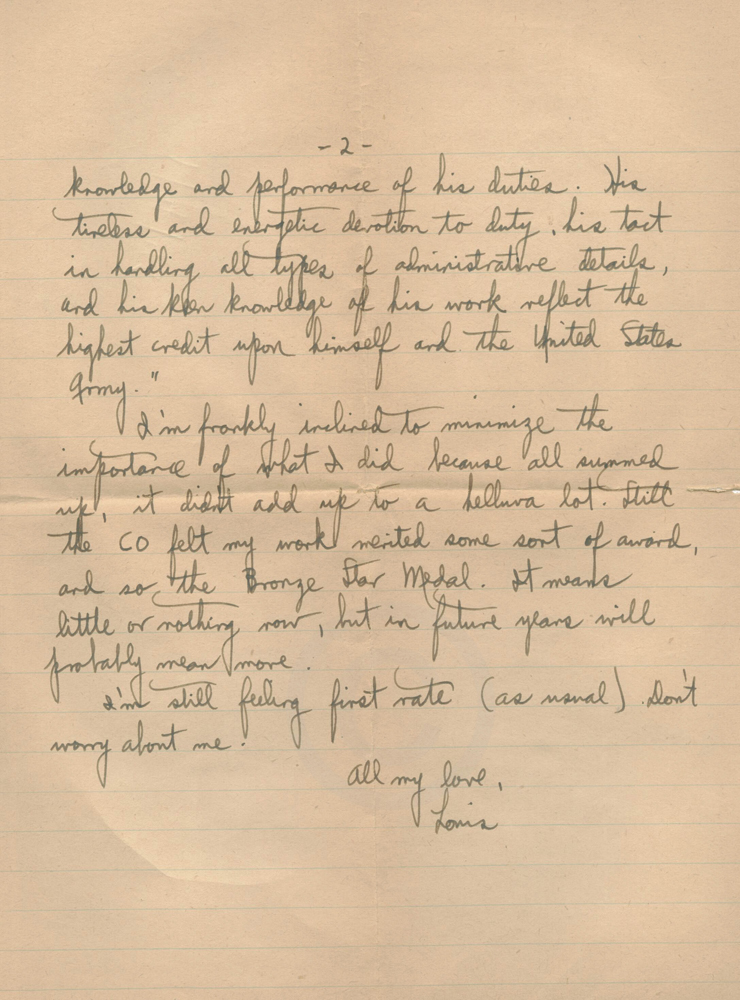 - 2 -
knowledge and performance of his duties. His
tireless and energetic devotion to duty, his tact
in handling all types of administrative details,
and his keen knowledge of his work reflect the
highest credit upon himself and the United States
Army."
I'm frankly inclined to minimize the
importance of what I did because all summed
up, it didn't add up to a helluva lot. Still
the CO felt my work merited some sort of award,
and so, the Bronze Star Medal. It means
little or nothing now, but in future years will
probably mean more.
I'm still feeling first rate (as usual). Don't
worry about me.
All my love,
Louis